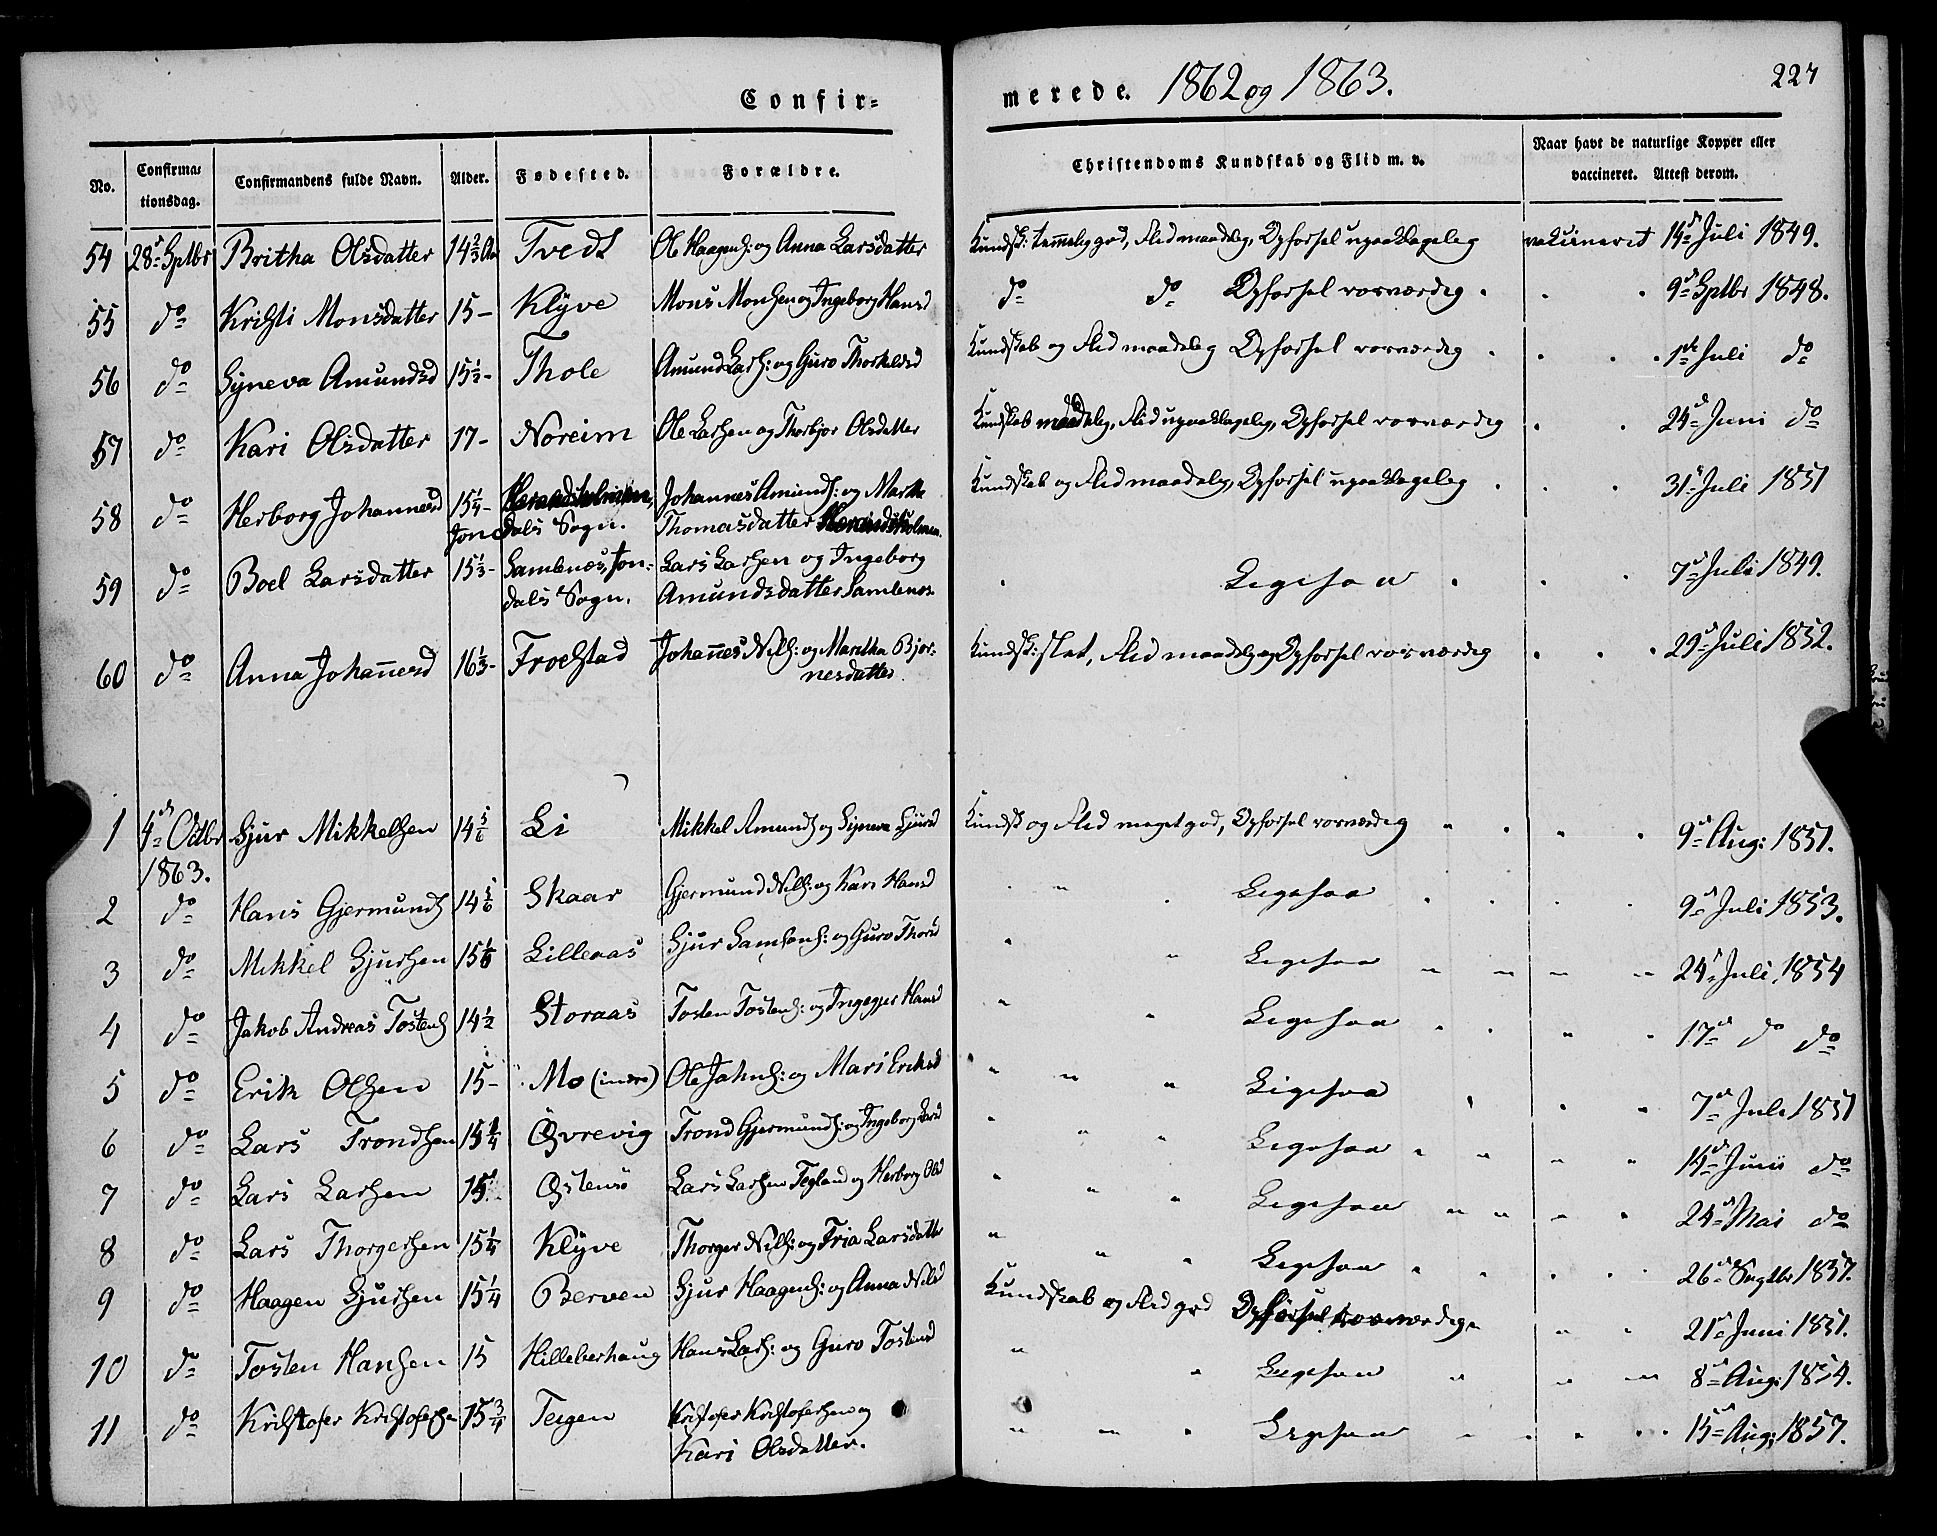 Confir-
merede. 1862 og 1863.
227
No. Confirmationsdag. Confirmandens fulde Navn. Alder. Fødested. Forældre. Christendoms Kundskab og Flid m. v. Naar havt de naturlige Kopper eller vaccineret. Attest derom.
54 28de Sptbr Britha Olsdatter 14 2/3 Aar Tvedt Ole Haagens: og Anna Larsdatter Kundsk: temmelig god, Flid maadelig, Opførsel upaaklagelig vakcineret 14de Juli 1849.
55 do Kristi Monsdatter 15- Klyve Mons Monsen og Ingeborg Hansd do do Opførsel rosværdig 9de Sptbr 1848.
56 do Syneva Amundsd 15 1/2- Thole Amund Lars: og Guro Thorkelsd Kundskab og Flid maadelig Opførsel rosværdig 1ste Juli do
57 do Kari Olsdatter 17- Noreim Ole Larsen og Thorbjør Olsdatter Kundskab maadelig, Flid upaaklagelig, Opførsel rosværdig 24de Juni do
58 do Herborg Johannesd 15 1/4- Herandsholmen, Johannes Amunds: og Martha Kundskab og Flid maadelig, Opførsel upaaklagelig 31te Juli 1851
Jondals Sogn. Thomasdatter Herandsholmen.
59 do Boel Larsdatter 15 1/3- Samlenæs, Jon- Lars Larsen og Ingeborg Ligesaa 7de Juli 1849.
dals Sogn. Amundsdatter Samlenæs
60 do Anna Johannesd 16 1/3- Froestad Johannes Nils: og Martha Bjør- Kundsk: slet, Flid maadelig og Opførsel rosværdig 29de Juli 1852.
nesdatter
1 4de Octbr Sjur Mikkelsen 14 5/6 Li Mikkel Amunds og Syneva Sjursd Kundsk og Flid meget god, Opførsel rosværdig 9de Aug: 1851.
1863.
2 do Hans Gjermunds 14 5/6 Skaar Gjermund Nils: og Kari Hansd Ligesaa 9de Juli 1853.
3 do Mikkel Sjursen 15 1/6 Lilleaas Sjur Samsons: og Guro Thorsd Ligesaa 24de Juli 1854
4 do Jakob Andreas Tostens 14 1/2 Storaas Tosten Tostens: og Ingegjer Hansd Ligesaa 17de do do
5 do Erik Olsen 15- Mo (indre) Ole Jahns: og Mari Eriksd Ligesaa 7de Juli 1851
6 do Lars Trondsen 15 1/4 Øvrevig Trond Gjermunds: og Ingeborg Larsd Ligesaa 14de Juni do
7 do Lars Larsen 15 Østensø Lars Larsen Tegland og Herborg Olsd Ligesaa 24de Mai do
8 do Lars Thorgersen 15 1/4 Klyve Thorger Nils: og Fria Larsdatter Ligesaa 26de Septbr 1857.
9 do Haagen Sjursen 15 1/4 Berven Sjur Haagens: og Anna Nilsd Kundskab og Flid god Opførsel rosværdig 21de Juni 1851.
10 do Tosten Hansen 15 Hilleberhaug Hans Lars: og Guro Tostensd Ligesaa 8de Aug: 1854.
11 do Kristofer Kristofersen 15 3/4 Teigen Kristofer Kristofersen og Ligesaa 15de Aug: 1857.
Kari Olsdatter.